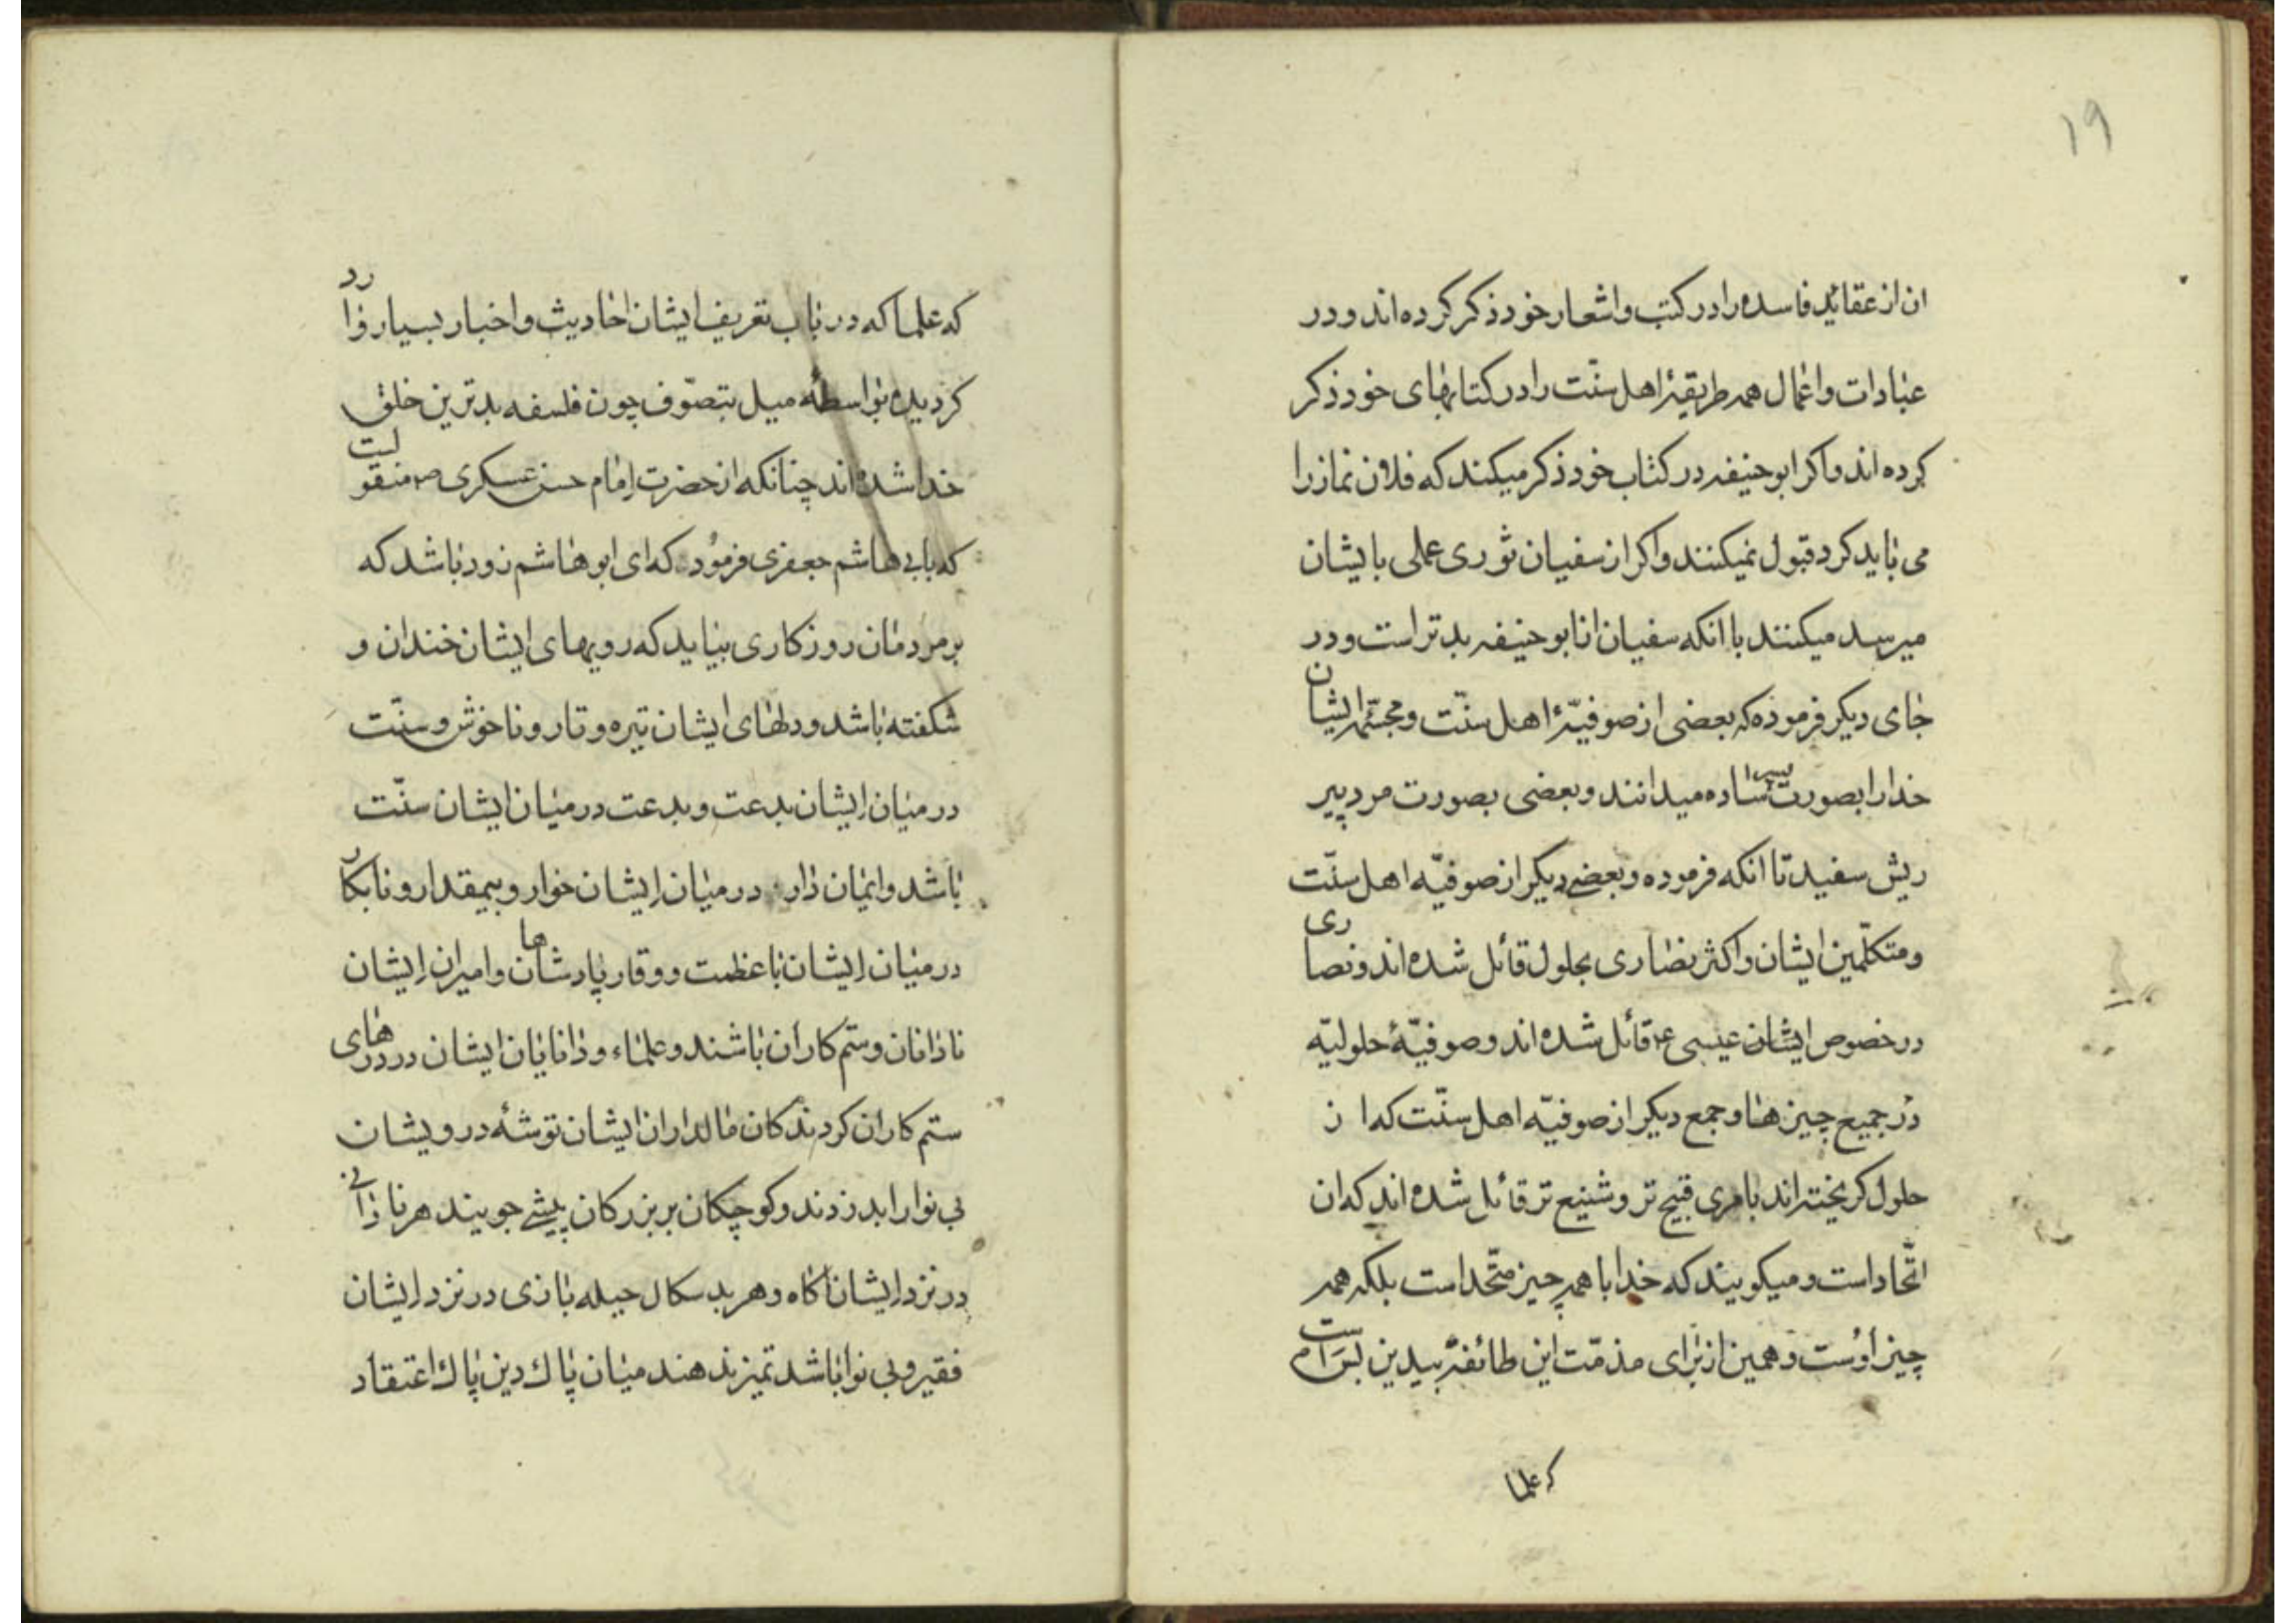 ۱۹
ان از عقائد فاسده را در کتب و اشعار خود ذکر کرده اند و در
عبادات و اعمال همه طریقهٔ اهل سنّت را در کتابهای خود ذکر
کرده اند و اکر ابو حنیفه در کتاب خود ذکر میکند که فلان نماز را
می باید کرد قبول نمیکنند و اکر از سفیان ثوری عملی بایشان
میرسد میکنند با انکه سفیان از ابو حنیفه بدتر است و در
جای دیکر فرموده که بعضی از صوفیّهٔ اهل سنّت و مجسّمهٔ ایشان
خدا را بصورت پسر ساده میدانند و بعضی بصورت مرد پیر
ریش سفید تا انکه فرموده و بعضی دیکر از صوفیّه اهل سنّت
و متکلّمین ایشان و اکثر نصاری بحلول قائل شده اند و نصاری
در خصوص ایشان عیسی ع قائل شده اند و صوفیّهٔ حلولیّه
در جمیع چیزها و جمع دیکر از صوفیّه اهل سنّت که از
حلول کریخته اند بامری قبیح تر و شنیع تر قائل شده اند که ان
اتّحاد است و میکویند که خدا با همه چیز متّحد است بلکه همه
چیز اوست و همین از برای مذمّت این طائفهٔ بیدین بس است
که علما
که علما که در باب تعریف ایشان احادیث و اخبار بسیار وارد
کردیده بواسطهٔ میل بتصوّف چون فلسفه بدترین خلق
خدا شده اند چنانکه از حضرت امام حسن عسکری ص منقولست
که بابی هاشم جعفری فرمود که ای ابو هاشم زود باشد که
بر مردمان روزکاری بیاید که رویهای ایشان خندان و
شکفته باشد و دلهای ایشان تیره و تار و ناخوش و سنّت
در میان ایشان بدعت و بدعت در میان ایشان سنّت
باشد و ایمان دار در میان ایشان خوار و بیمقدار و نابکار
در میان ایشان با عظمت و وقار پادشاهان و امیران ایشان
نادانان و ستم کاران باشند و علماء و دانایان ایشان در درهای
ستم کاران کردندکان مالداران ایشان توشهٔ درویشان
بی نوا را بدزدند و کوچکان بر بزرکان پیشی جویند هر نادانی
در نزد ایشان اکاه و هر بد سکال حیله بازی در نزد ایشان
فقیر و بی نوا باشد تمیز ندهند میان پاك دین پاك اعتقاد